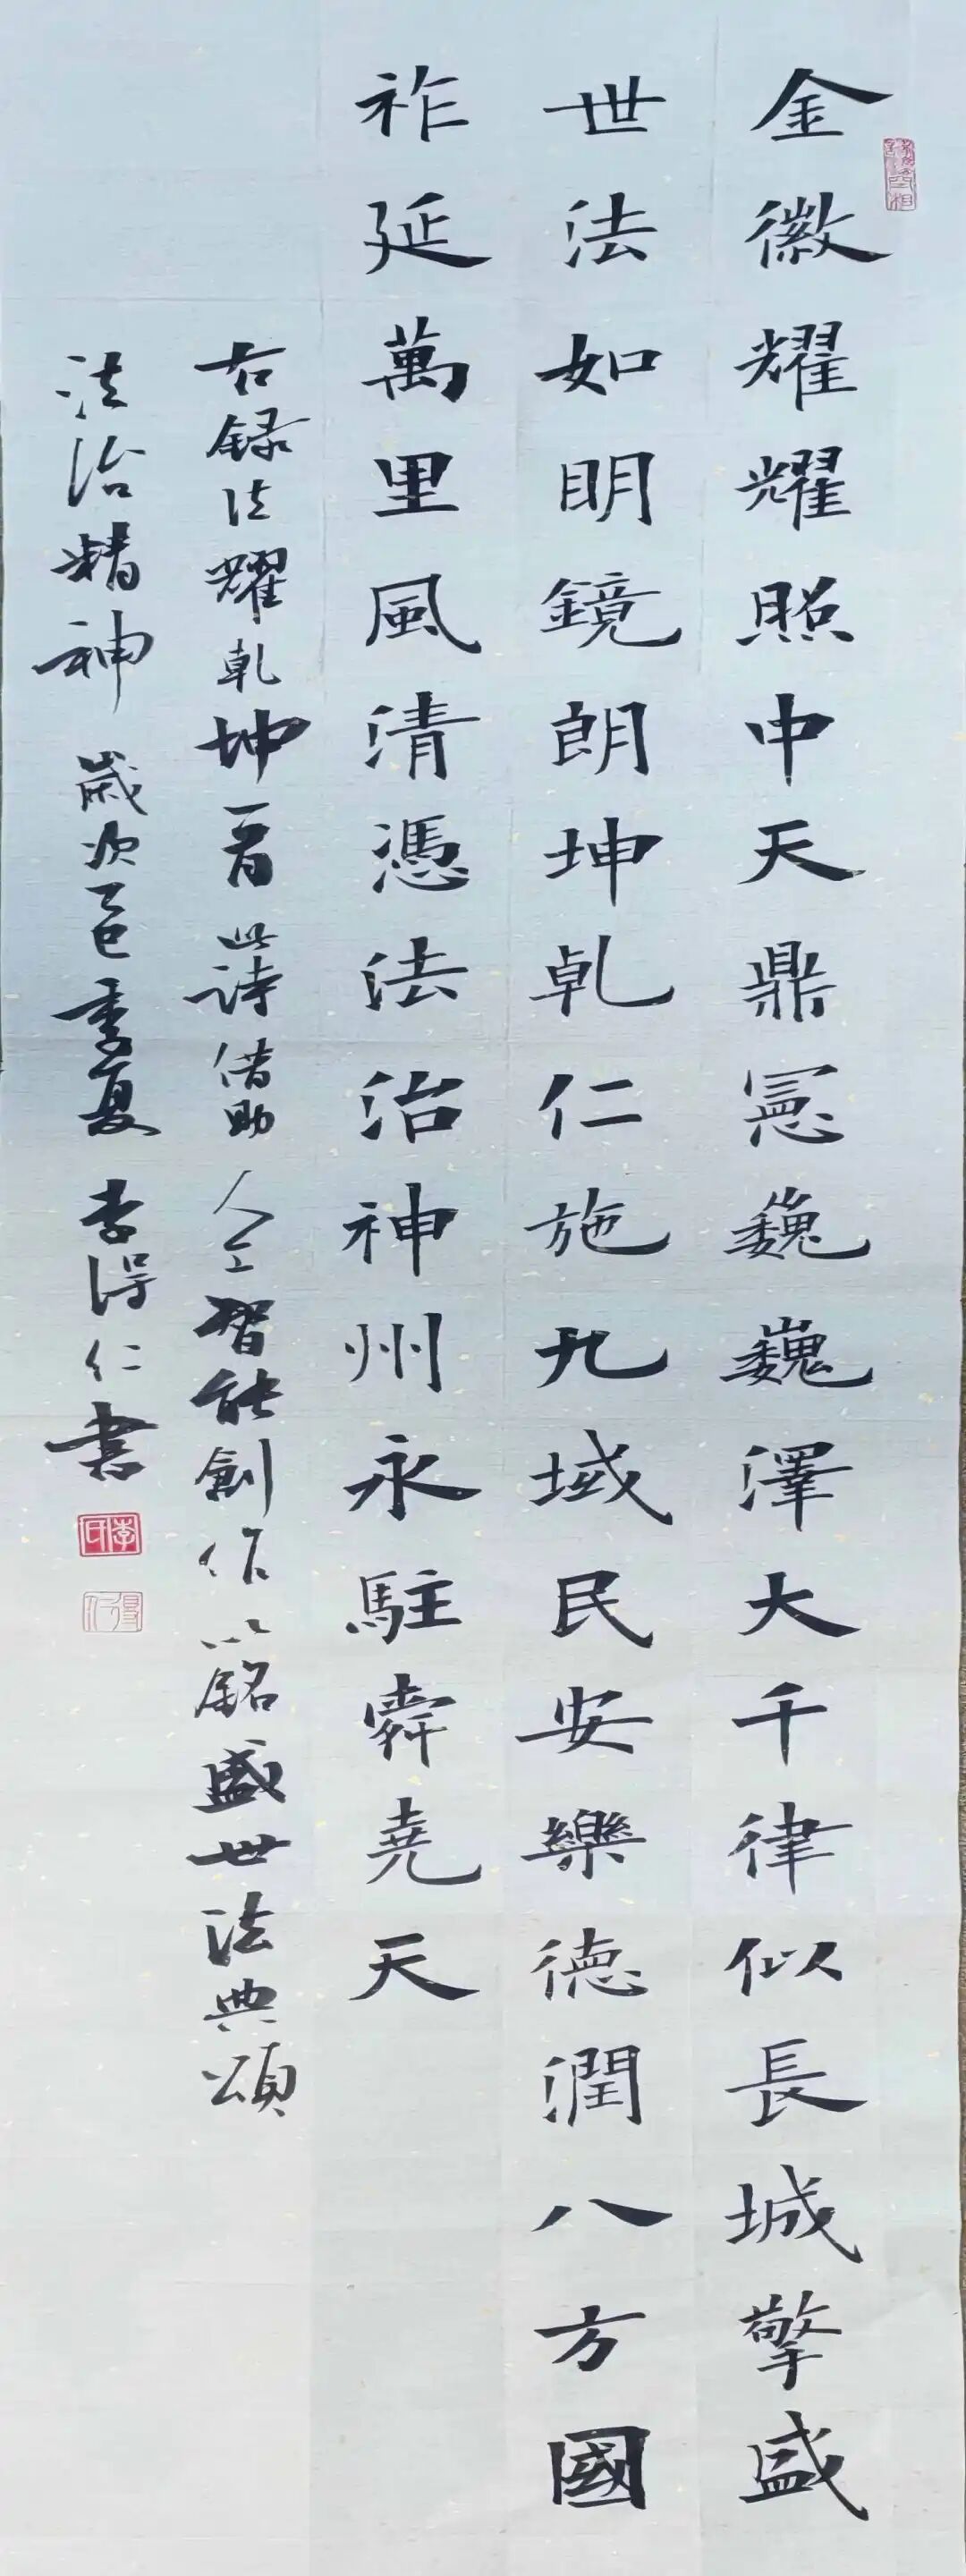 金徽耀耀照中天鼎憲巍巍澤大千律似長城擎盛
世法如明鏡朗坤乾仁施九域民安樂德潤八方國
祚延萬里風清憑法治神州永駐舜堯天
右録法耀乾坤一首此詩借助人工智能創作以銘盛世法典頌
法治精神 歲次乙巳季夏 李得仁書
李氏
得仁